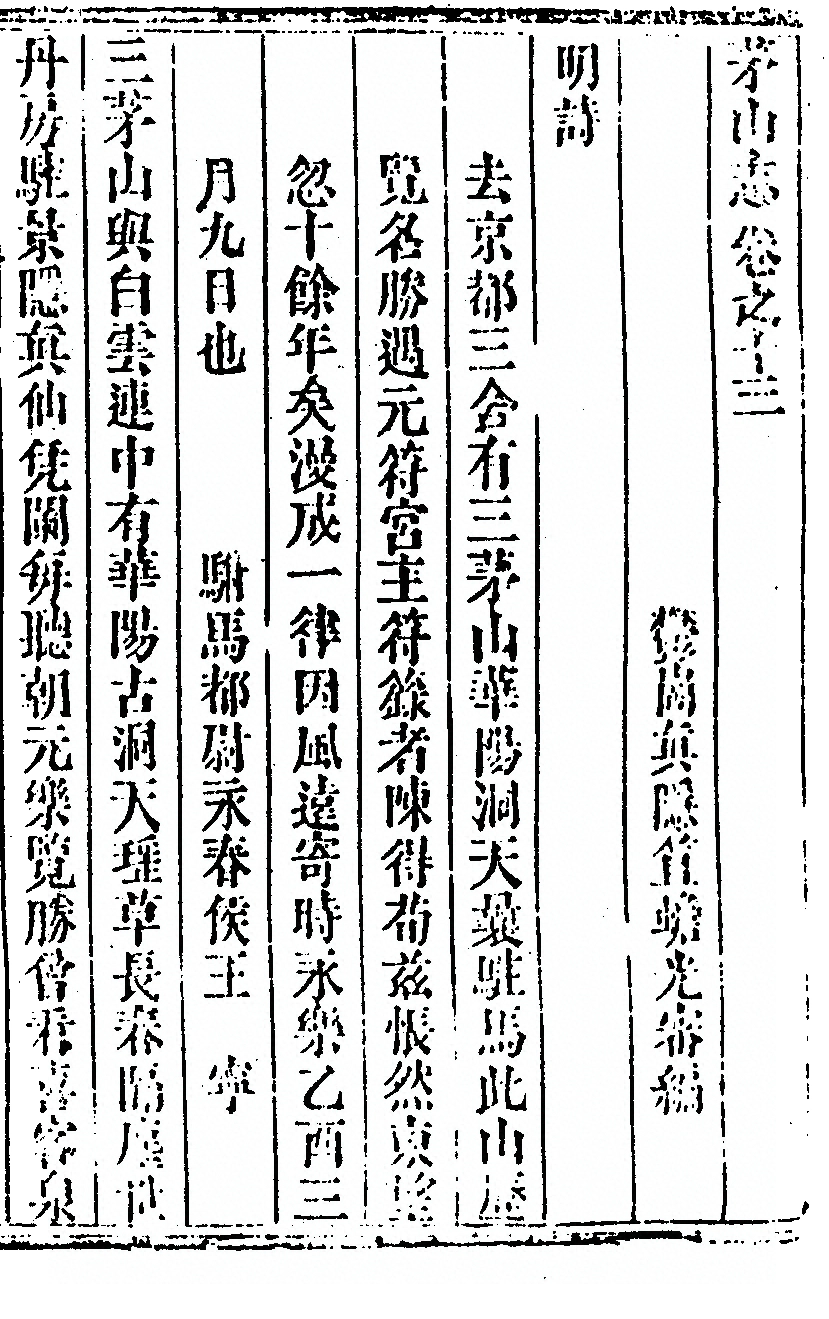 茅山志卷之十三
笪蟾光審編
明詩
去京都三舍有三茅山華陽洞天曩駐馬此山歷
覽名勝遇元符宮主符籙者陳得荀茲悵然東望
忽十餘年矣漫成一律因風遠寄時永樂乙酉三
月九日也 駙馬都尉永春侯王 寧
三茅山與白雲連中有華陽古洞天瑤草長春隔塵世
丹房駐景隱真仙凭闌每聽朝元樂覽勝曾看喜客泉